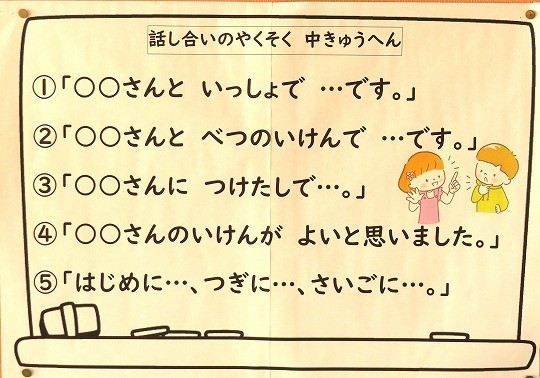 話し合いのやくそく 中きゅうへん
①「○○さんと いっしょで …です。」
②「○○さんと べつのいけんで …です。」
③「○○さんに つけたしで…。」
④「○○さんのいけんが よいと思いました。」
⑤「はじめに…、つぎに…、さいごに…。」